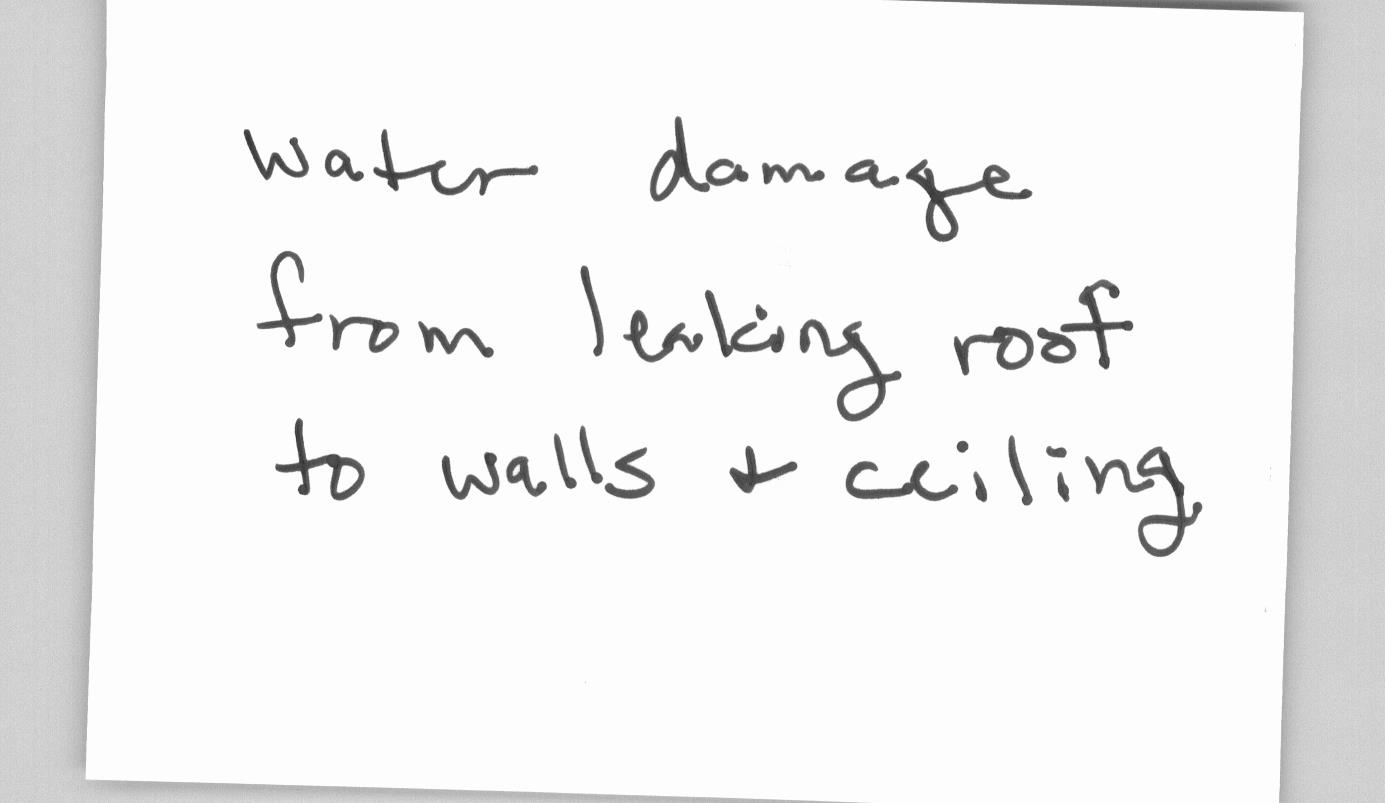 Water damage
from leaking roof
to walls + ceiling